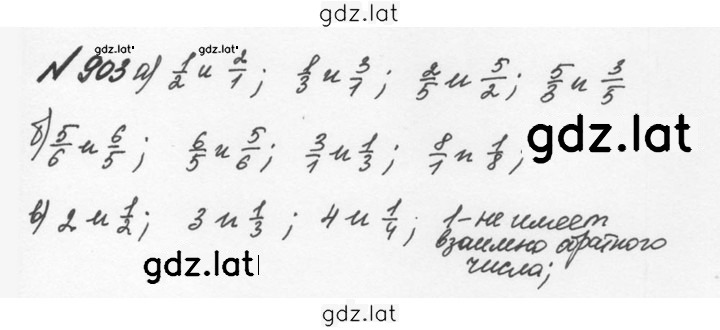 gdz.lat
gdz.lat gdz.lat
№903 а) 1/2 и 2/1; 1/3 и 3/1; 2/5 и 5/2; 5/3 и 3/5
б) 5/6 и 6/5; 6/5 и 5/6; 3/1 и 1/3; 8/1 и 1/8;
gdz.lat
в) 2 и 1/2; 3 и 1/3; 4 и 1/4; 1-не имеет
взаимно обратного
числа;
gdz.lat
gdz.lat